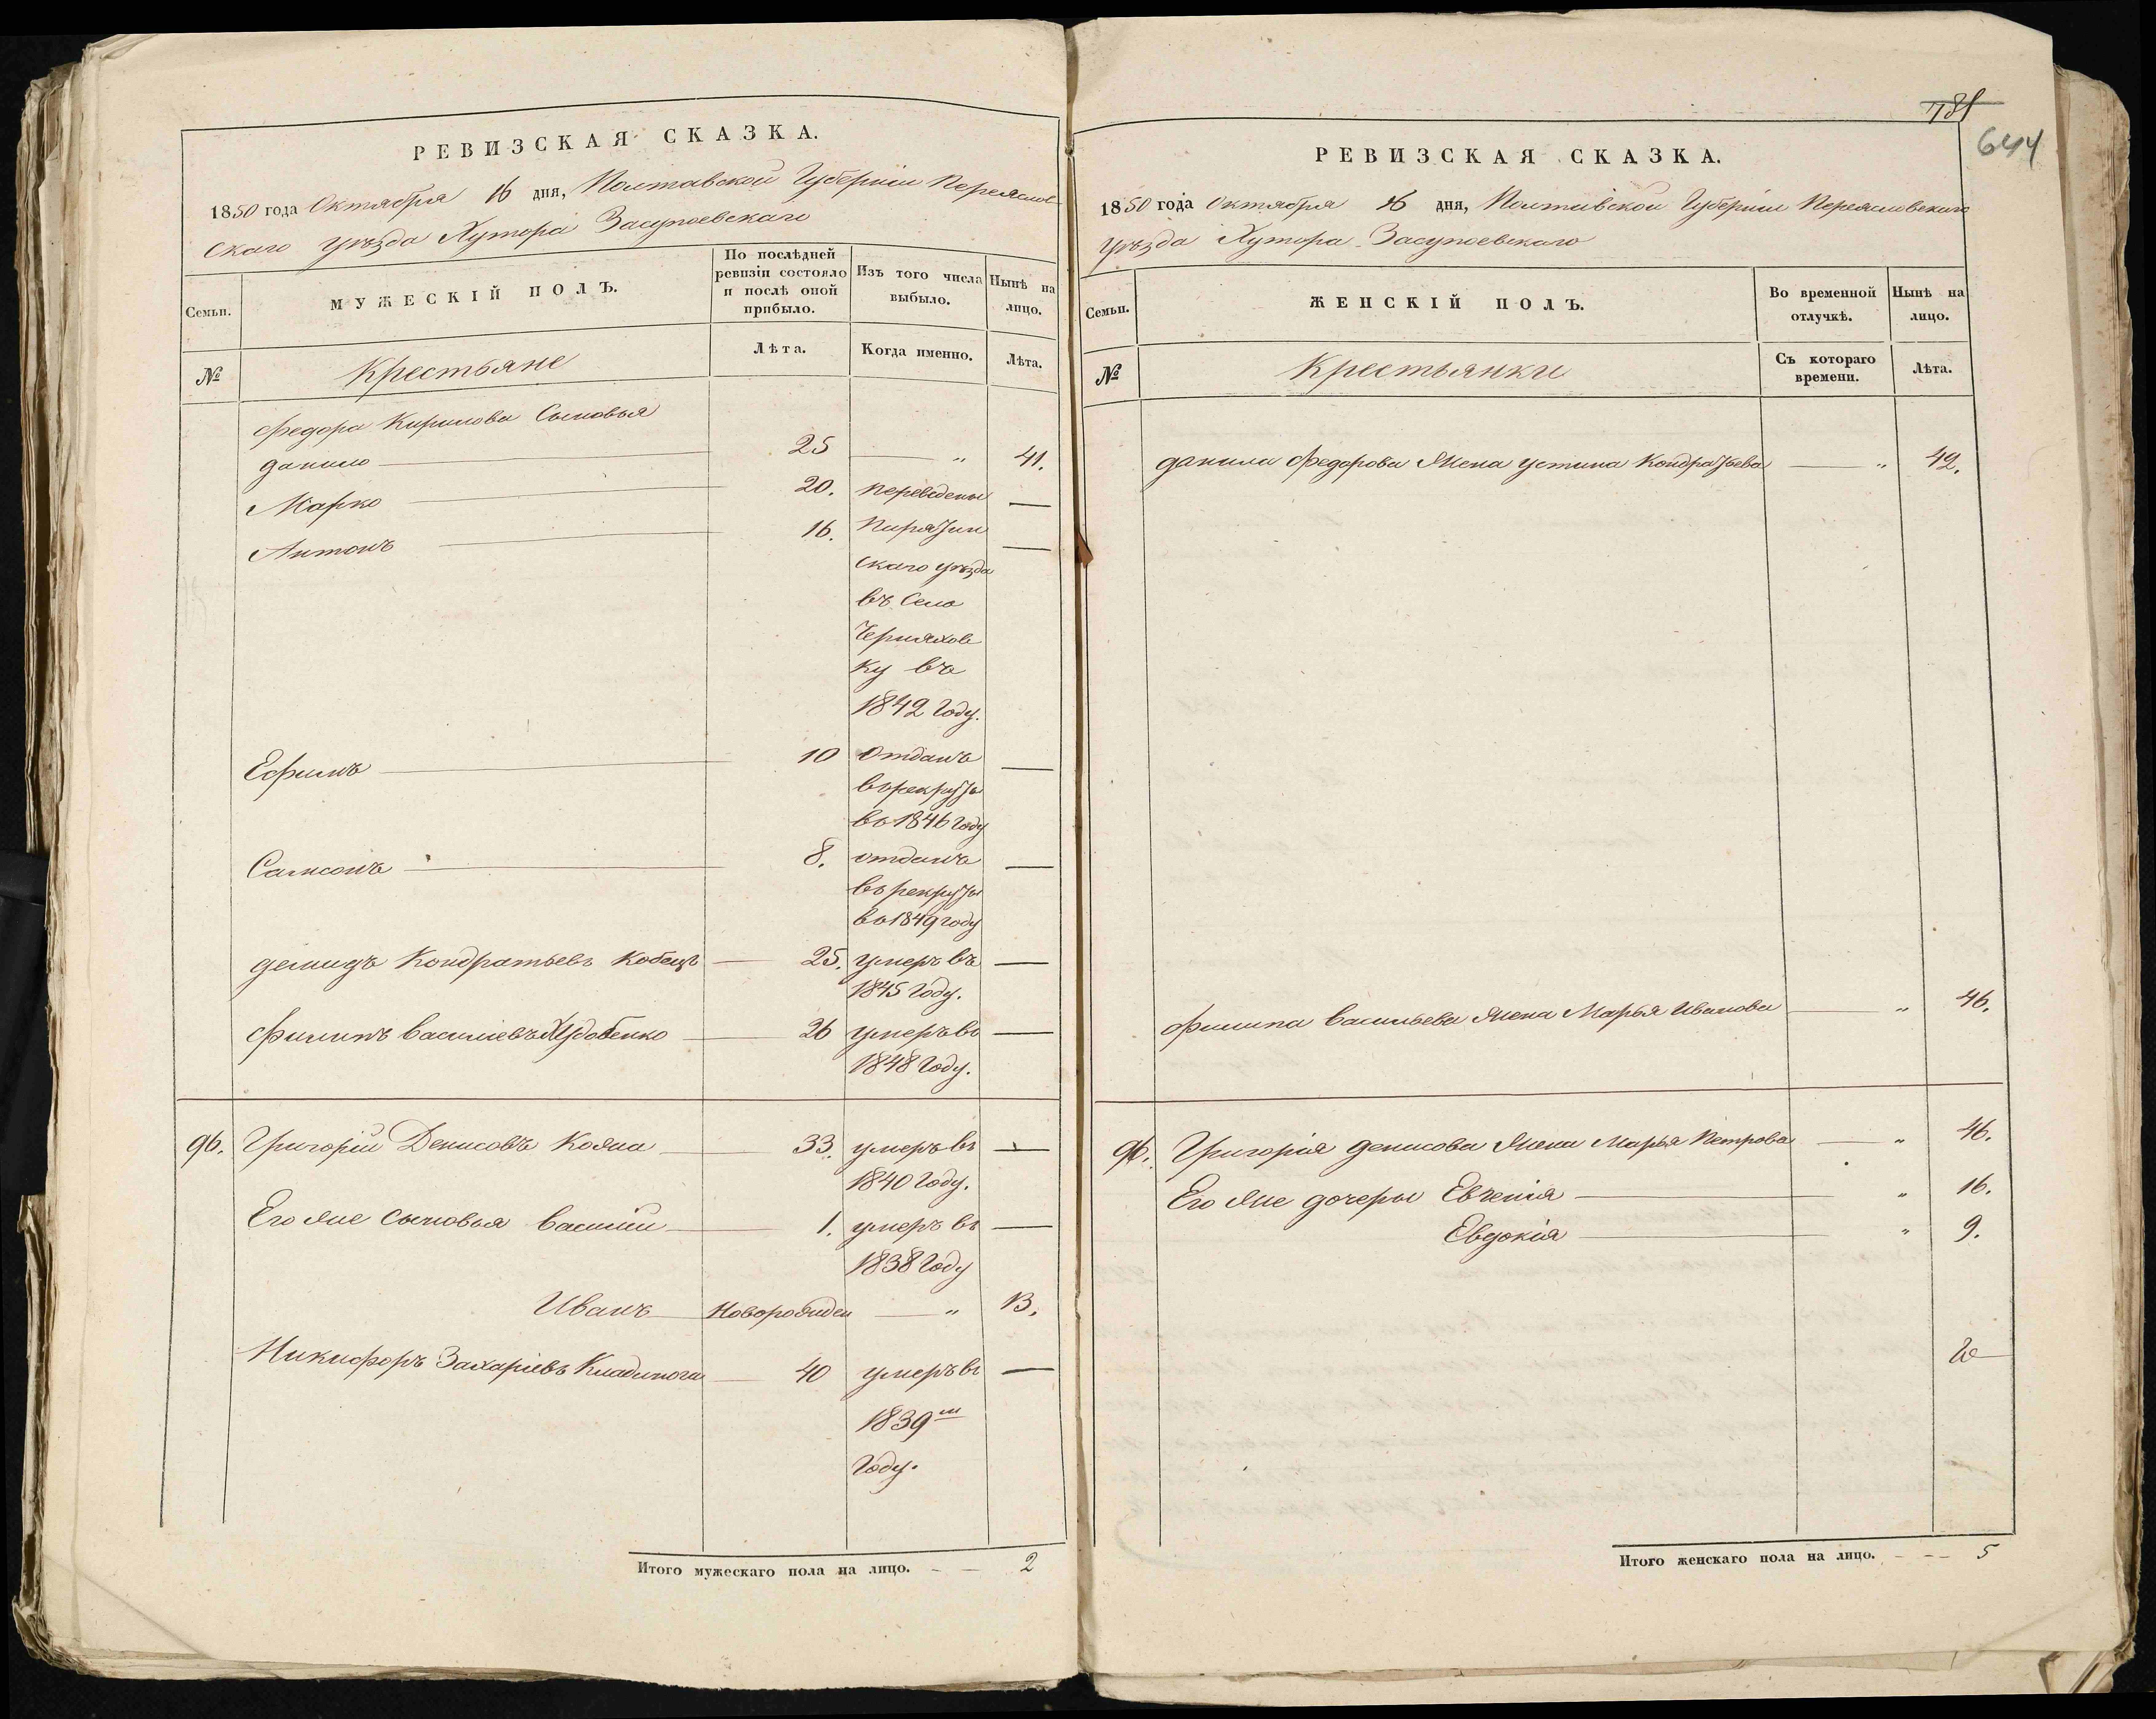 РЕВИЗСКАЯ СКАЗКА.
1850 года Октября 16 дня, Полтавской Губерніи Переяслов
скаго уѣзда Хутора Засупоевскаго
Семьи.
МУЖЕСКІЙ ПОЛЪ.
По послѣдней ревизіи состояло и послѣ оной прибыло.
Изъ того числа выбыло.
Нынѣ на лицо.
№
Крестьяне
Лѣта.
Когда именно.
Лѣта.
Федора Кирилова Сыновья
Данило 25 " 41.
Марко 20. переведены
Антонъ 16. Пирятин
скаго уѣзда
въ Село
Черняхов
ку въ
1842 Году.
Ефимъ 10 Отданъ
въ рекруты
въ 1846 Году
Самсонъ 8. отданъ
въ рекруты
въ 1849 году
Демидъ Кондратьевъ Кобецъ 25. умеръ въ
1845 Году.
Филипъ Василіевъ Худобенко 26 умеръ въ
1848 Году.
96. Григорій Денисовъ Кояна 33. умеръ въ
1840 Году.
Его же Сыновья Василій 1. умеръ въ
1838 Году
Иванъ Новорожден " 13.
Никифоръ Захаріевъ 40 умеръ въ
1839 м
Году.
Итого мужескаго пола на лицо. 2
781
644
РЕВИЗСКАЯ СКАЗКА.
1850 года Октября 16 дня, Полтавской Губерніи Переясловскаго
Уѣзда Хутора Засупоевскаго
Семьи.
ЖЕНСКІЙ ПОЛЪ.
Во временной отлучкѣ.
Нынѣ на лицо.
№
Крестьянки
Съ котораго времени.
Лѣта.
Данила Федорова Жена Устина Кондратьева " 42.
Филипа Васильева Жена Марья Иванова " 46.
96. Григорія Денисова Жена Марья Петрова " 46.
Его же дочери Евгенія " 16.
Евдокія " 9.
Итого женскаго пола на лицо. 5